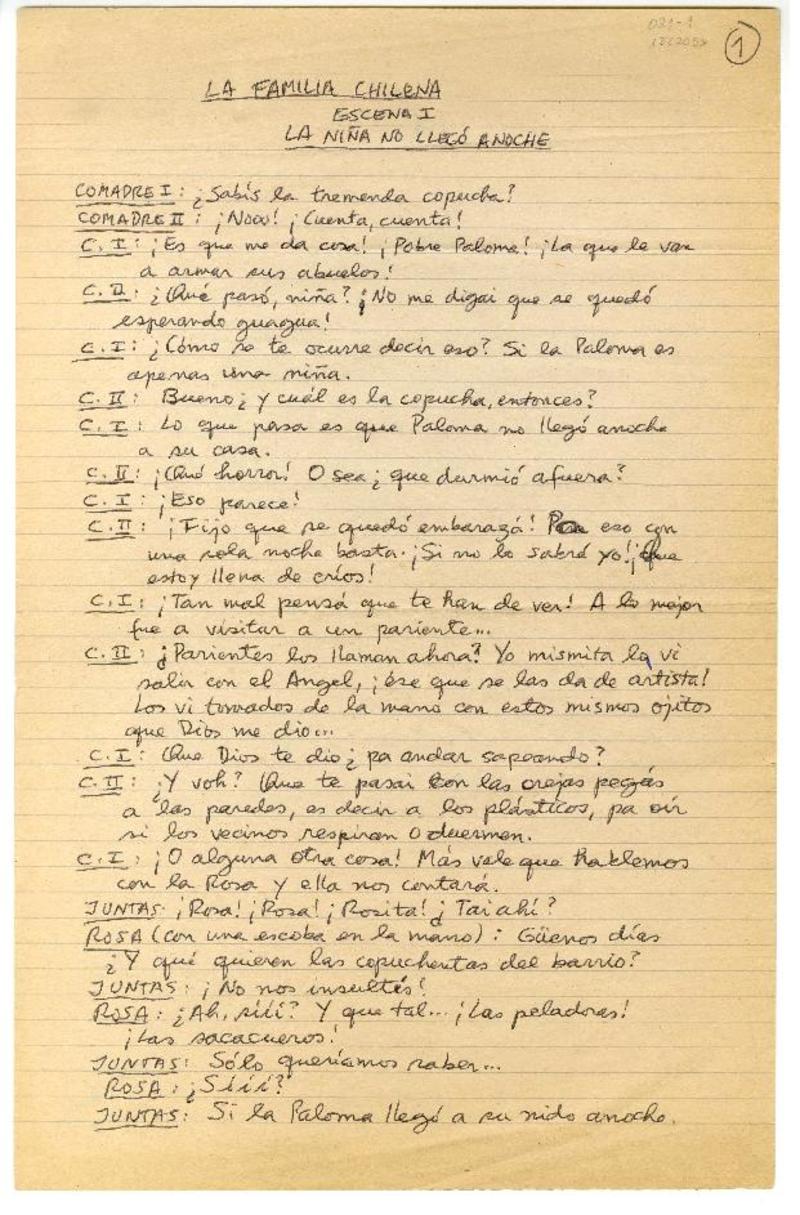 021-1
1
LA FAMILIA CHILENA
ESCENA I
LA NIÑA NO LLEGÓ ANOCHE
COMADRE I: ¿Sabís la tremenda copucha?
COMADRE II: ¡Nooo! ¡Cuenta, cuenta!
C. I: ¡Es que me da cosa! ¡Pobre Paloma! ¡La que le van
a armar sus abuelos!
C. II: ¿Qué pasó, niña? ¡No me digai que se quedó
esperando guagua!
C. I: ¿Cómo se te ocurre decir eso? Si la Paloma es
apenas una niña.
C. II: Bueno ¿y cuál es la copucha, entonces?
C. I: Lo que pasa es que Paloma no llegó anoche
a su casa.
C. II: ¡Qué horror! O sea ¿que durmió afuera?
C. I: ¡Eso parece!
C. II: ¡Fijo que se quedó embarazá! Pa eso con
una sola noche basta. ¡Si no lo sabré yo! ¡Que
estoy llena de críos!
C. I: ¡Tan mal pensá que te han de ver! A lo mejor
fue a visitar a un pariente...
C. II: ¿Parientes los llaman ahora? Yo mismita la vi
salir con el Angel, ¡ése que se las da de artista!
Los vi tomados de la mano con estos mismos ojitos
que Dios me dio...
C. I: Que Dios te dio ¿pa andar sapeando?
C. II: ¿Y voh? Que te pasai con las orejas pegás
a las paredes, es decir a los plásticos, pa oír
si los vecinos respiran o duermen.
C. I: ¡O alguna otra cosa! Más vale que hablemos
con la Rosa y ella nos contará.
JUNTAS: ¡Rosa! ¡Rosa! ¡Rosita! ¿Tai ahí?
ROSA (con una escoba en la mano): Güenos días
¿Y qué quieren las copuchentas del barrio?
JUNTAS: ¡No nos insultés!
ROSA: ¿Ah, síii? Y que tal... ¡Las peladoras!
¡Las sacacueros!
JUNTAS: Sólo queríamos saber...
ROSA: ¿Síii?
JUNTAS: Si la Paloma llegó a su nido anoche.